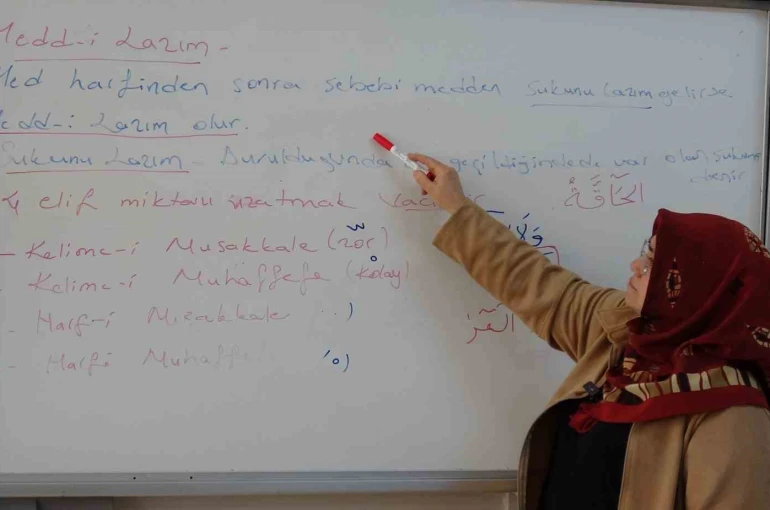 Medd-i Lazım -
Med harfinden sonra sebebi medden sukunu lazım gelirse
Medd-i Lazım olur.
Sukunu Lazım - Durulduğunda geçildiğindede var olan sukuna denir
4 elif miktarı uzatmak
الحَآقَّةُ
- Kelime-i Musakkale (zor)
- Kelime-i Muhaffefe (kolay)
- Harf-i Musakkale
- Harfi